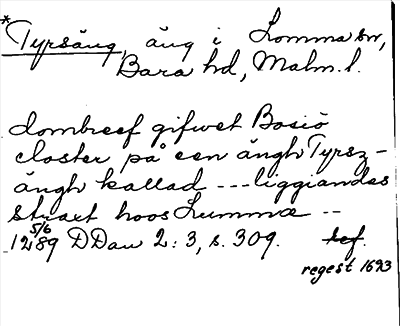 *Tyrsäng, äng i Lomma sn,
Bara hd, Malm. l.
dombreef gifwet Bosiö
closter på een ängh Tyrsz-
ängh kallad --- liggiandes
straxt hoos Lumma --
5/6
1289 DDan 2:3, s. 309. bef.
regest 1623